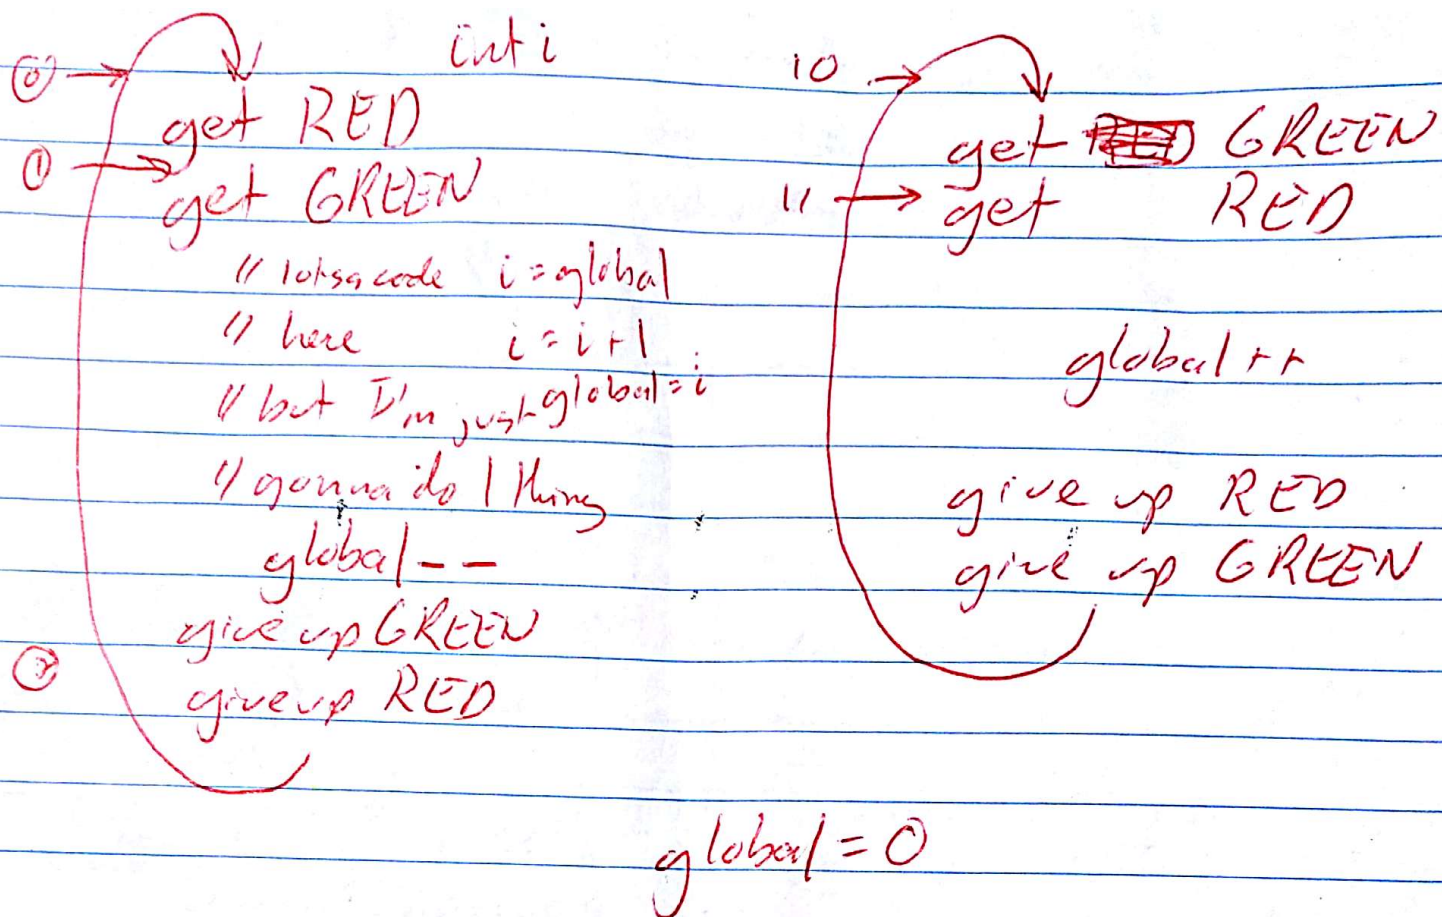 int i
0 →
get RED
1 →
get GREEN
// lotsa code i = global
// here i = i + 1
// but I'm just global = i
// gonna do 1 thing
global --
give up GREEN
give up RED
10 →
get GREEN
11 →
get RED
global ++
give up RED
give up GREEN
global = 0